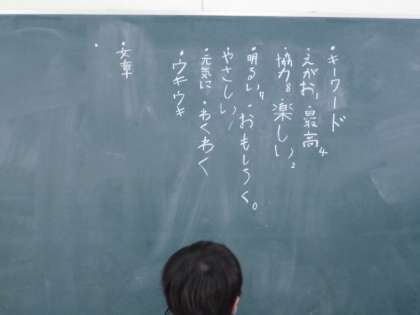 ・キーワード
・えがお1・最高4
・協力8・楽しい2
・明るい11・おもしろく。0
・やさしい1
・元気に・わくわく
・ウキウキ
・文章
・